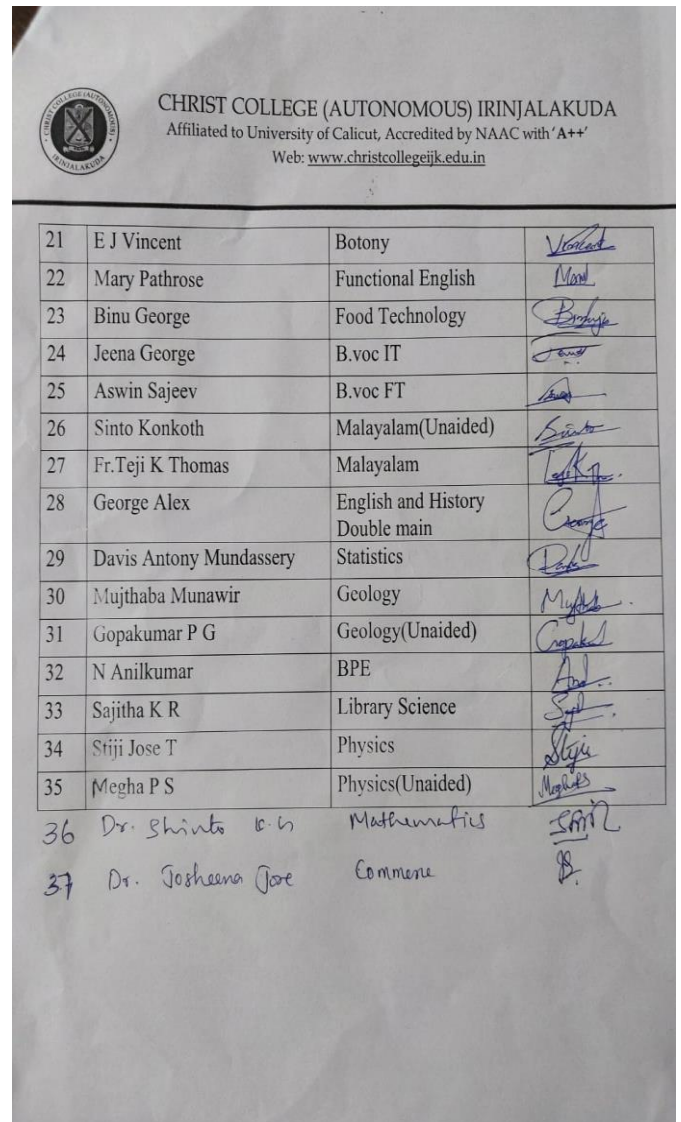 CHRIST COLLEGE (AUTONOMOUS)
IRINJALAKUDA
CHRIST COLLEGE (AUTONOMOUS) IRINJALAKUDA
Affiliated to University of Calicut, Accredited by NAAC with ‘A++’
Web: www.christcollegeijk.edu.in
21 E J Vincent Botony Vincent
22 Mary Pathrose Functional English
23 Binu George Food Technology
24 Jeena George B.voc IT
25 Aswin Sajeev B.voc FT
26 Sinto Konkoth Malayalam(Unaided) Sinto
27 Fr.Teji K Thomas Malayalam
28 George Alex English and History
Double main
29 Davis Antony Mundassery Statistics
30 Mujthaba Munawir Geology
31 Gopakumar P G Geology(Unaided)
32 N Anilkumar BPE
33 Sajitha K R Library Science
34 Stiji Jose T Physics Stiji
35 Megha P S Physics(Unaided) MeghaPS
36 Dr. Shinto Mathematics
37 Dr. Josheena Jose Commerce